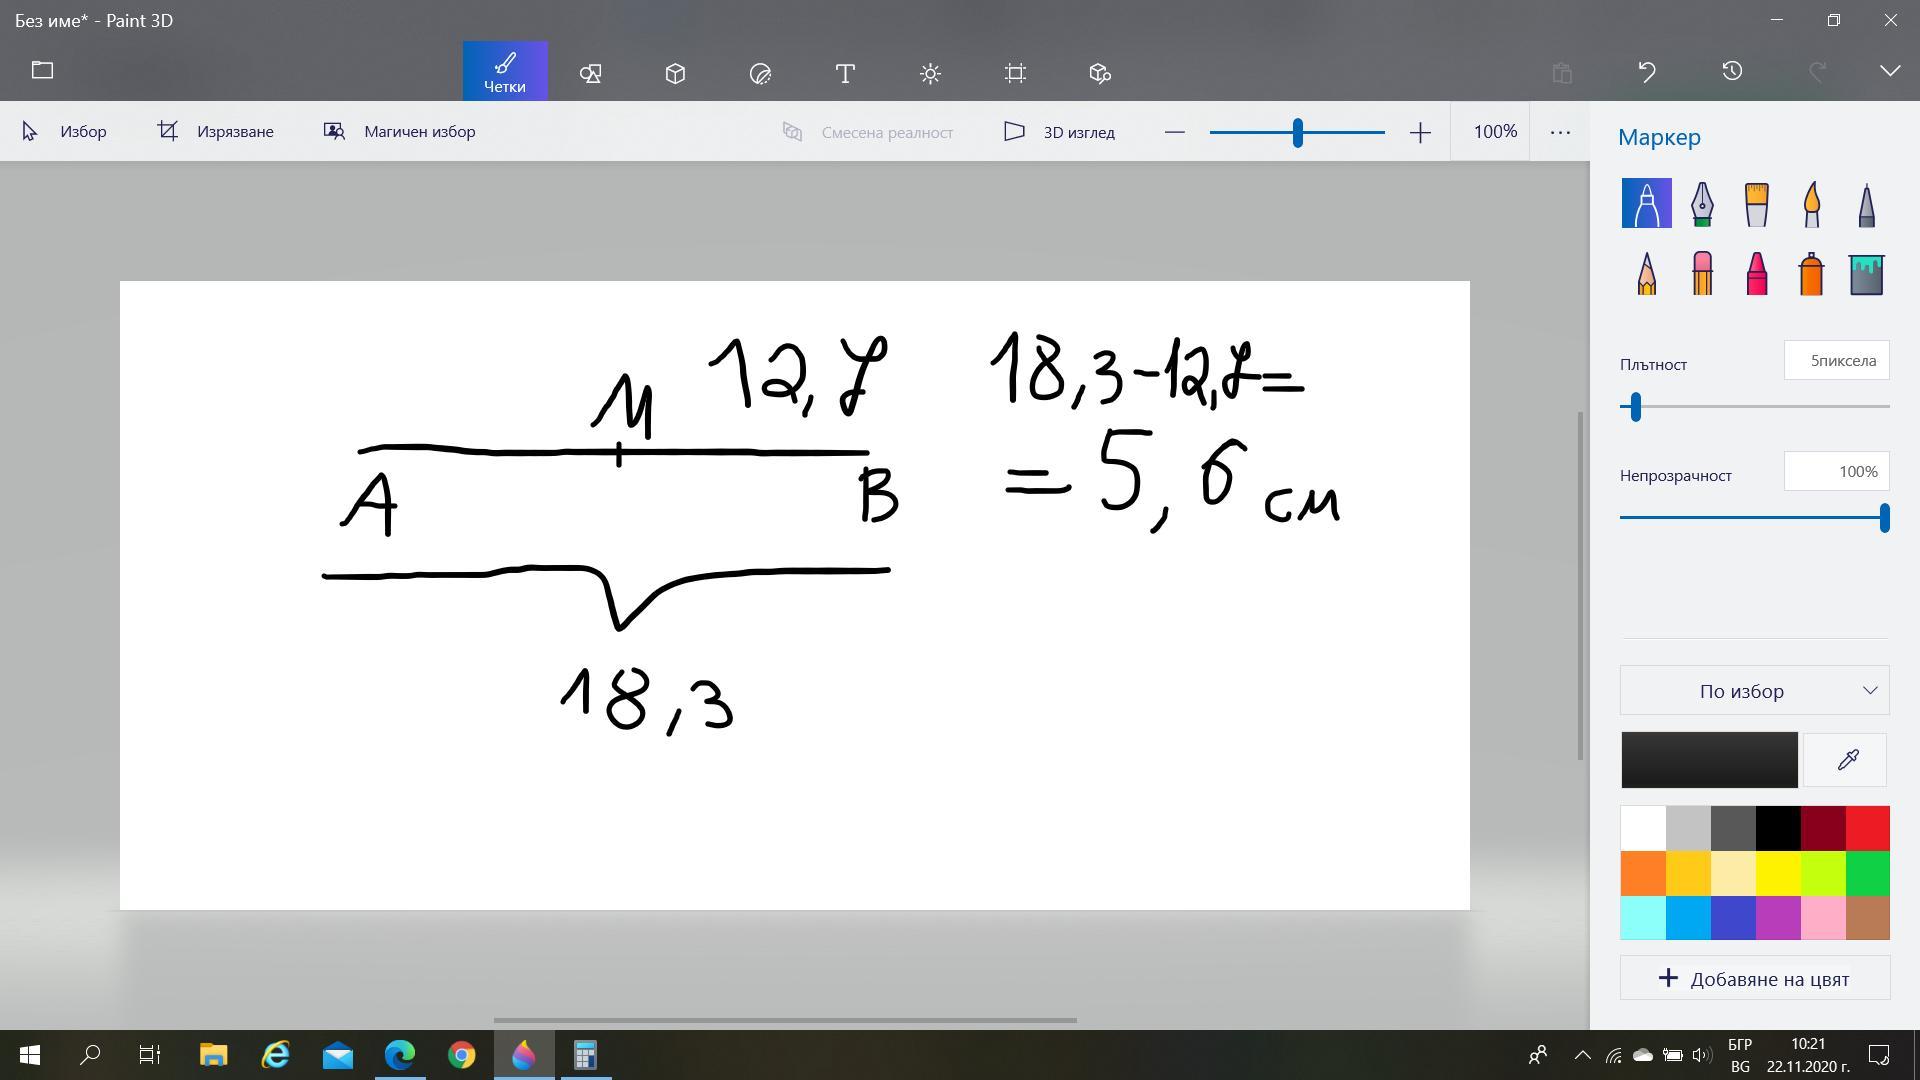 Без име* - Paint 3D
Четки
Избор
Изрязване
Магичен избор
Смесена реалност
3D изглед
100%
Маркер
Плътност
5пиксела
Непрозрачност
100%
По избор
Добавяне на цвят
12,7
M
A
B
18,3
18,3-12,7=
=5,6 см
БГР
BG
10:21
22.11.2020 г.